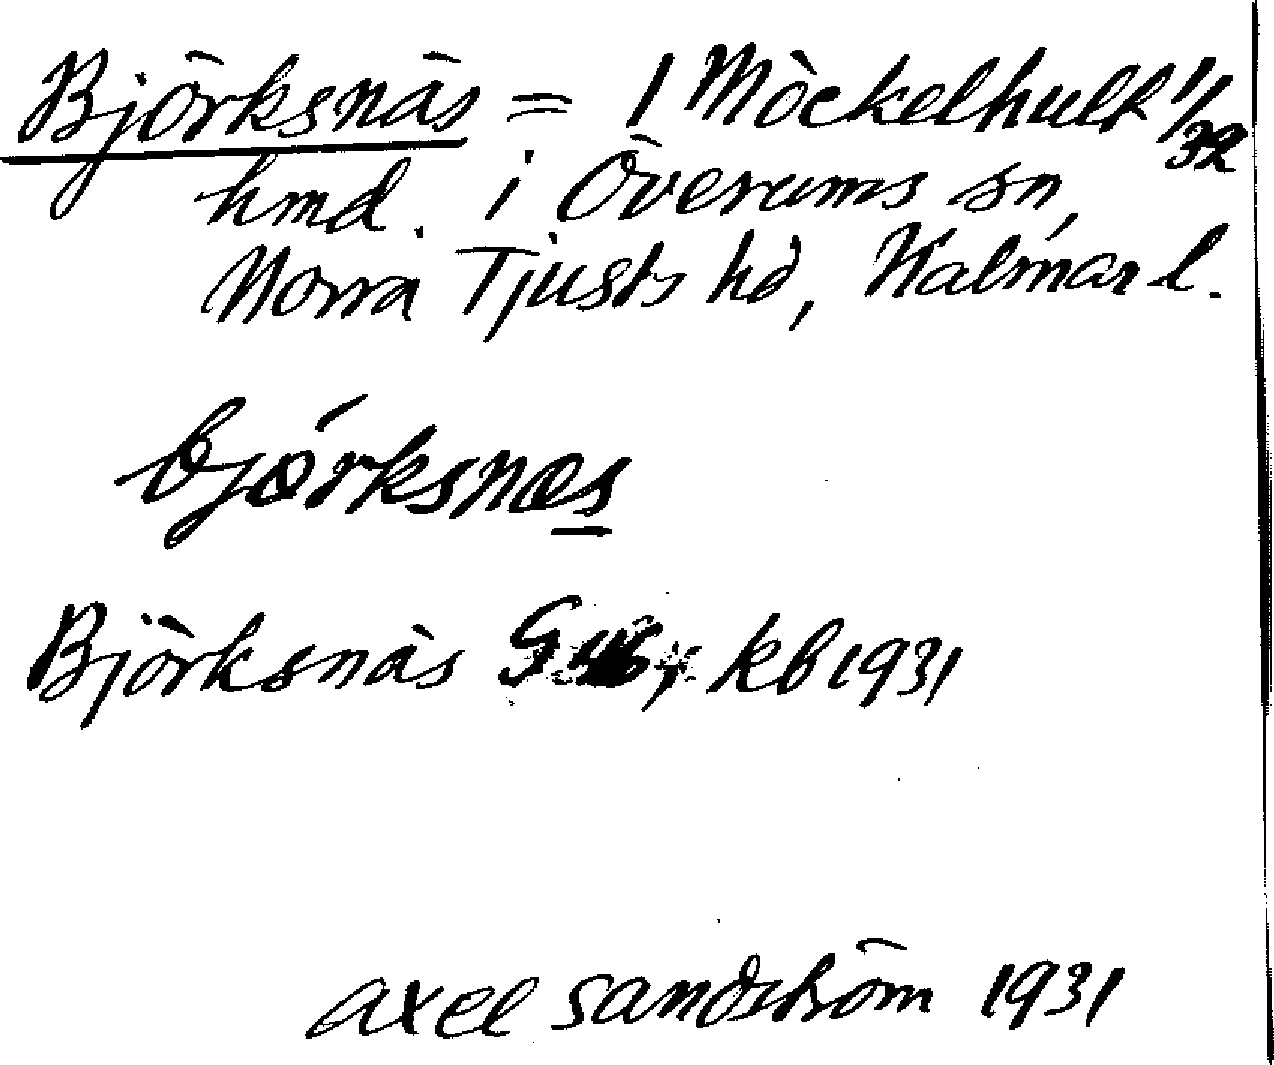 Björksnäs = 1 Möckelhult 1/32
hmd. i Överums sn,
Norra Tjusts hd, Kalmar l.
bjórksnæs
Björksnäs kb 1931
Axel Sandström 1931